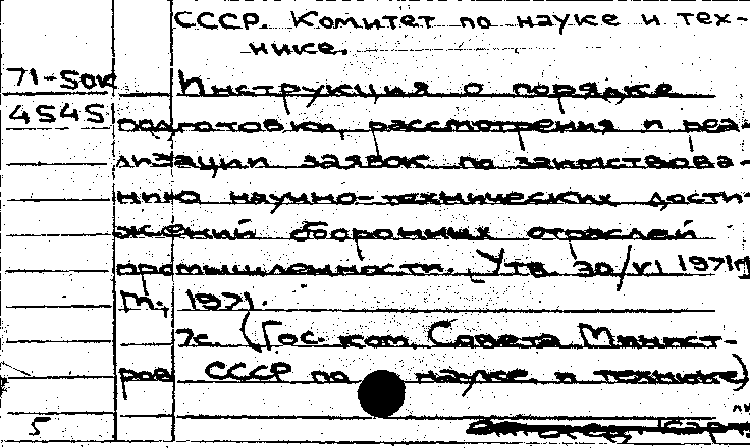 СССР. Комитет по науке и тех-
нике.
71-50к Инструкция о порядке
4545 подготовки, рассмотрения и реа-
лизации заявок по заимствова-
нию научно-технических дости-
жений оборонных отраслей
промышленности. Утв. 30/VI 1971г.
М., 1971.
7с. (Гос. ком. Совета Минист-
ров СССР по науке и технике)
5